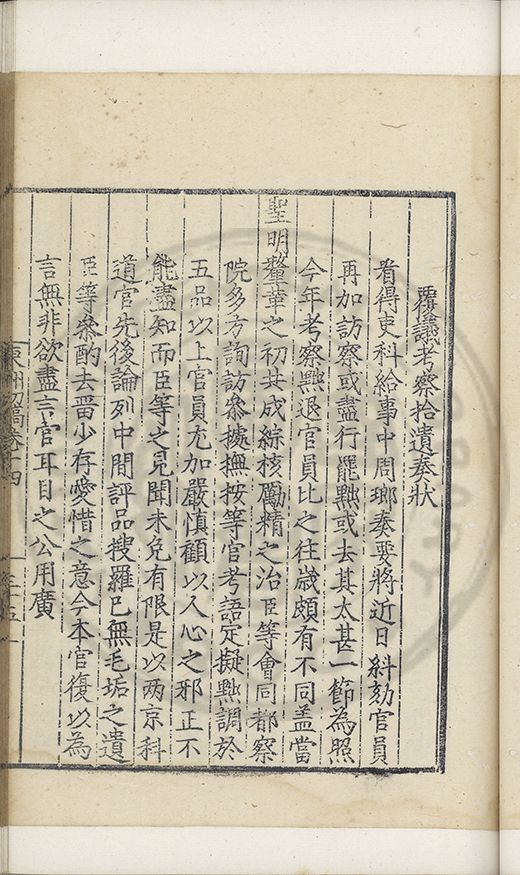 覆議考察拾遺奏狀
看得吏科給事中周瑯奏要將近日糾劾官員
再加訪察或盡行罷黜或去其太甚一節為照
今年考察黜退官員比之往歲頗有不同盖當
聖明釐革之初共成綜核勵精之治臣等會同都察
院多方詢訪叅據撫按等官考語定擬黜調於
五品以上官員尤加嚴慎顧以人心之邪正不
能盡知而臣等之見聞未免有限是以两京科
道官先後論列中間評品搜羅已無毛垢之遺
臣等叅酌去畱少存愛惜之意今本官復以為
言無非欲盡言官耳目之公用廣
東洲初稿卷十四